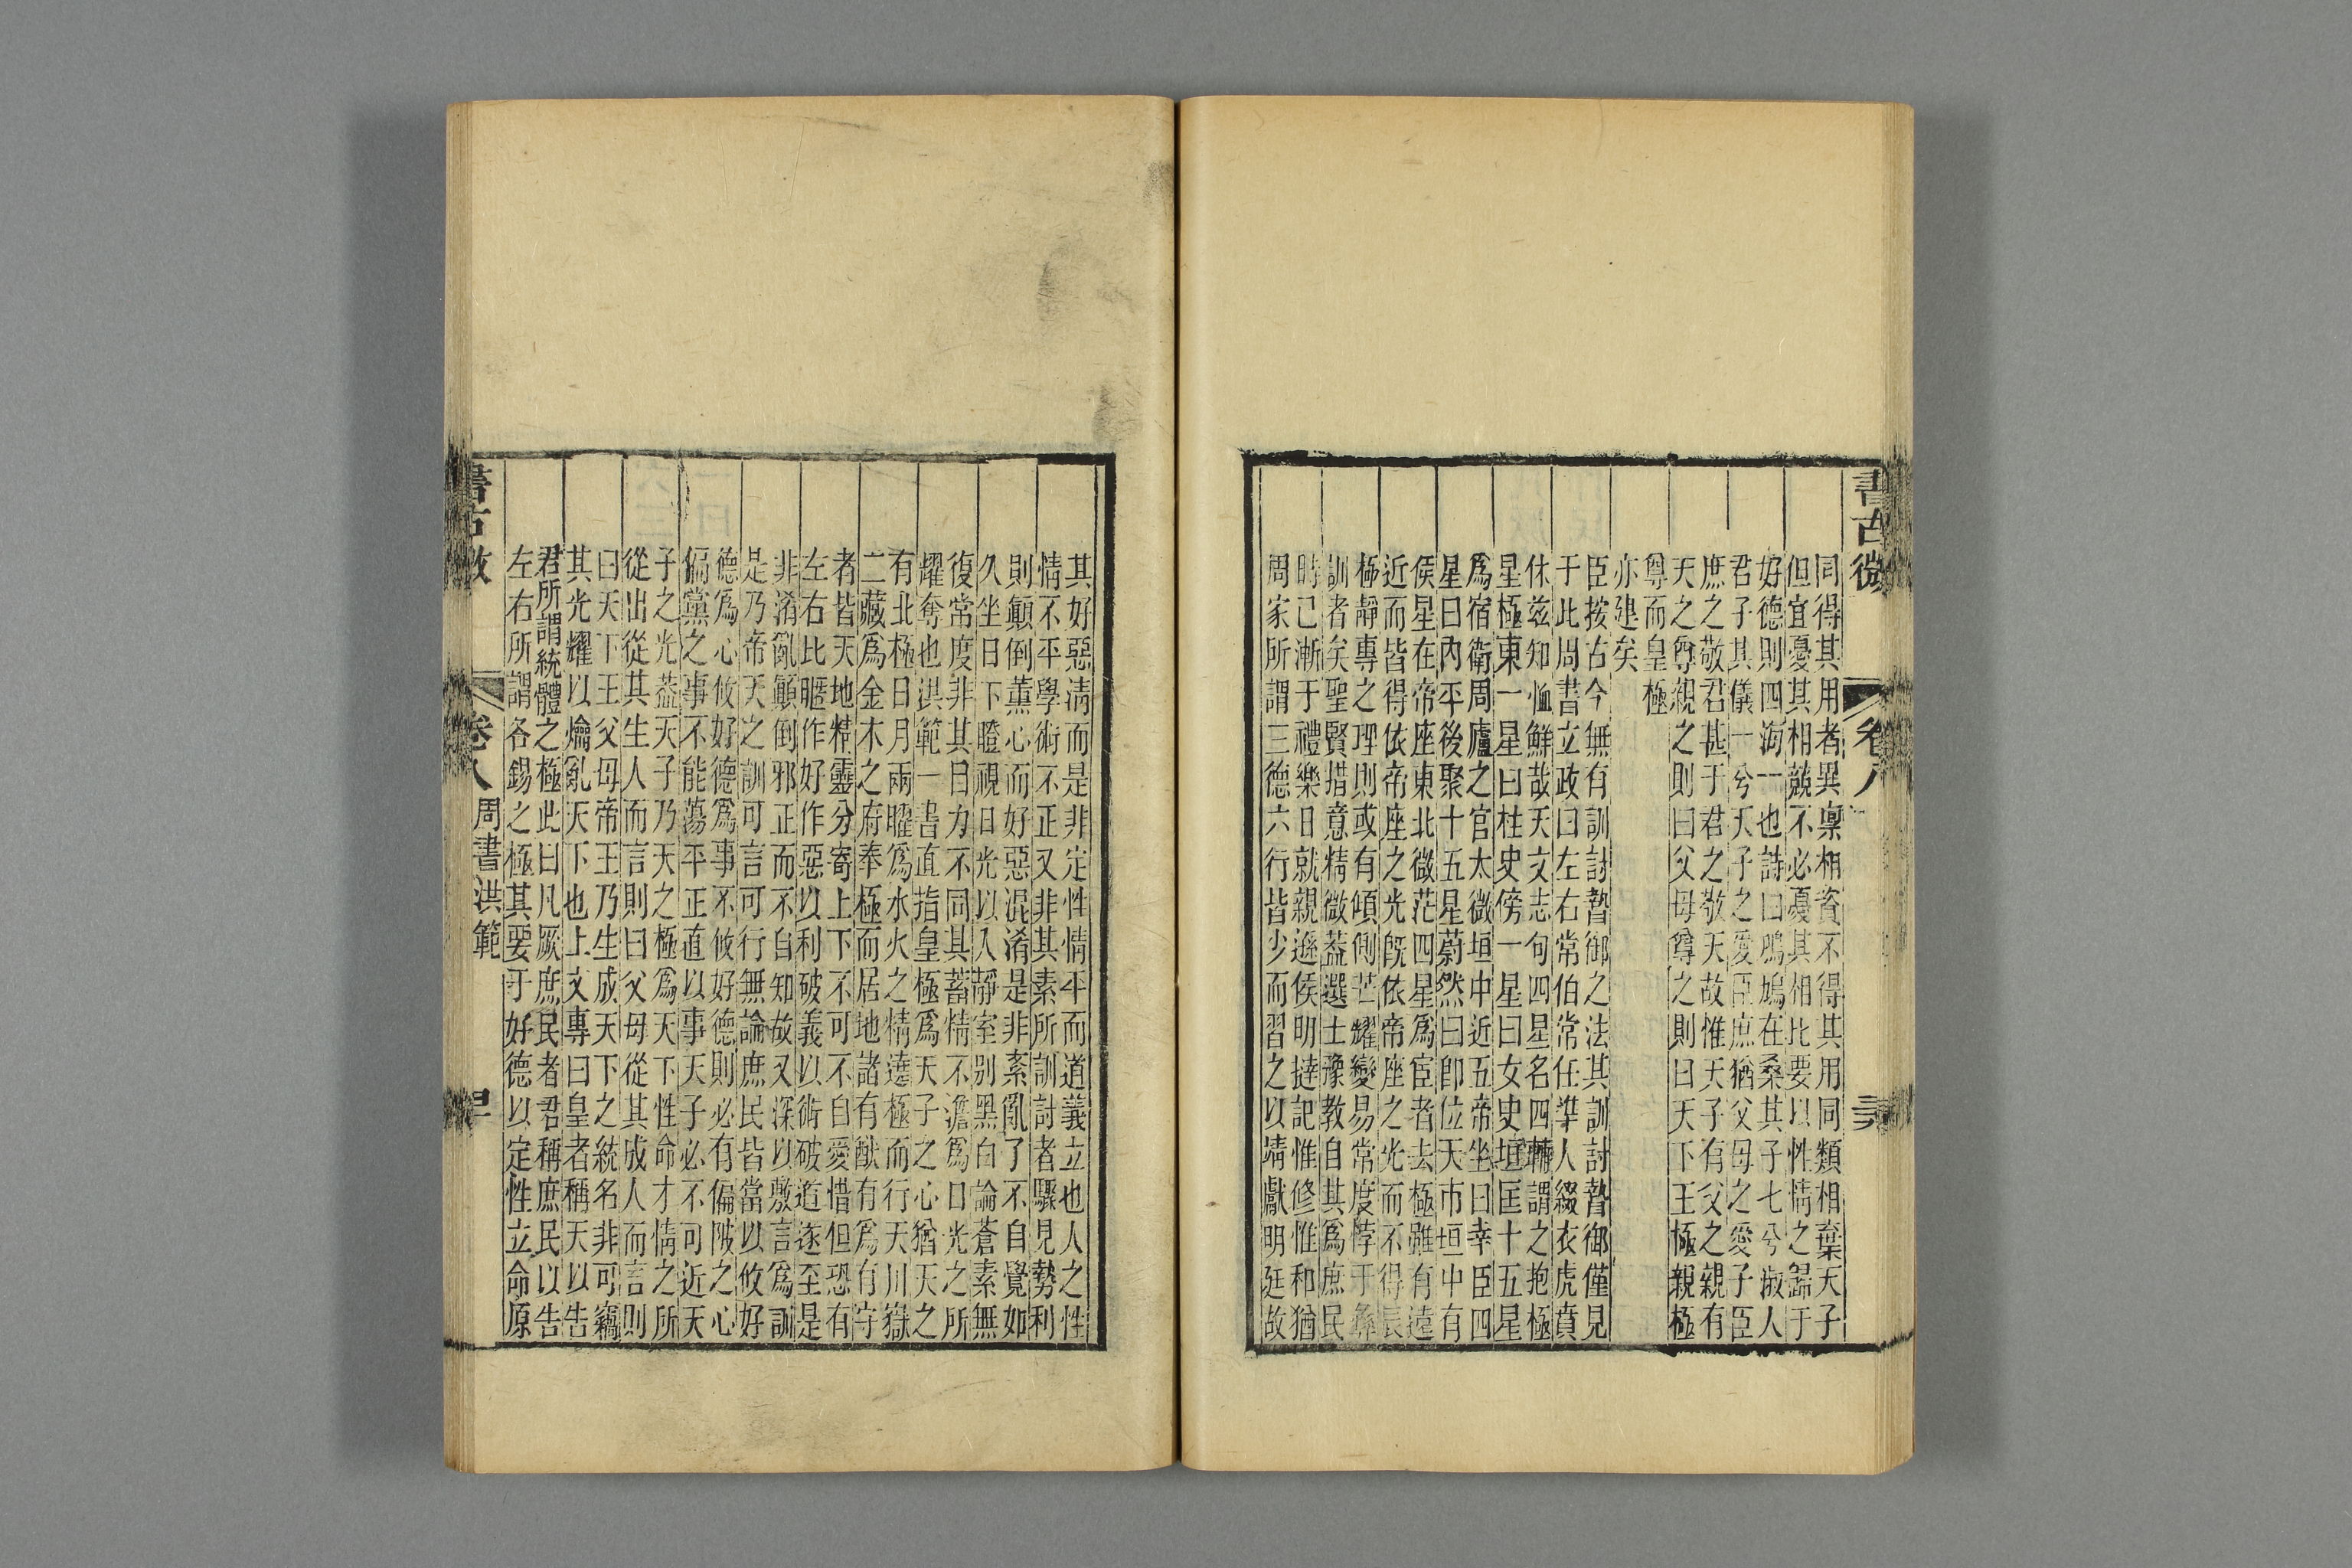 書古微
卷八
同得其用者異稟相資不得其用同類相棄天子
但宜憂其相兢不必憂其相比要以性情之歸于
好德則四海一也詩曰鳲鳩在桑其子七兮淑人
君子其儀一兮天子之愛臣庶猶父母之愛子臣
庶之敬君甚于君之敬天故惟天子有父之親有
天之尊親之則曰父母尊之則曰天下王極親極
尊而皇極
亦建矣
臣按古今無有訓討暬御之法其訓討暬御僅見
于此周書立政曰左右常伯常任準人綴衣虎賁
休茲知恤鮮哉天文志句四星名四輔謂之抱極
星極東一星曰柱史傍一星曰女史垣匡十五星
爲宿衛周廬之官太微垣中近五帝坐曰幸臣四
星曰內平後聚十五星蔚然曰郎位天市垣中有
侯星在帝座東北微茫四星爲宦者去極雖有遠
近而皆得依帝座之光旣依帝座之光而不得辰
極靜專之理則或有傾側芒耀變易常度悖于彝
訓者矣聖賢措意精微葢選士豫教自其爲庶民
時已漸于禮樂日就親遜侯明撻記惟修惟和猶
周家所謂三德六行皆少而習之以靖獻明廷故
其好惡淸而是非定性情平而道義立也人之性
情不平學術不正又非其素所訓討者驟見勢利
則顚倒薰心而好惡混淆是非紊亂了不自覺如
久坐日下瞪視日光以入靜室別黑白論蒼素無
復常度非其目力不同其蓄精不澹爲日光之所
耀奪也洪範一書直指皇極爲天子之心猶天之
有北極日月兩曜爲水火之精遶極而行天川嶽
二藏爲金木之府奉極而居地諸有猷有爲有守
者皆天地精靈分寄上下不可不自愛惜但恐有
左右比暱作好作惡以利破義以術破道逐至是
非淆亂顚倒邪正而不自知故又深以敷言爲訓
是乃帝天之訓可言可行無論庶民皆當以攸好
德爲心攸好德爲事不攸好德則必有偏陂之心
偏黨之事不能蕩平正直以事天子必不可近天
子之光葢天子乃天之極爲天下性命才情之所
從出從其生人而言則曰父母從其成人而言則
曰天下王父母帝王乃生成天下之統名非可竊
其光耀以爚亂天下也上文專曰皇者稱天以告
君所謂統體之極此曰凡厥庶民者君稱庶民以告
左右所謂各錫之極其要于好德以定性立命原
書古微
卷八
周書洪範